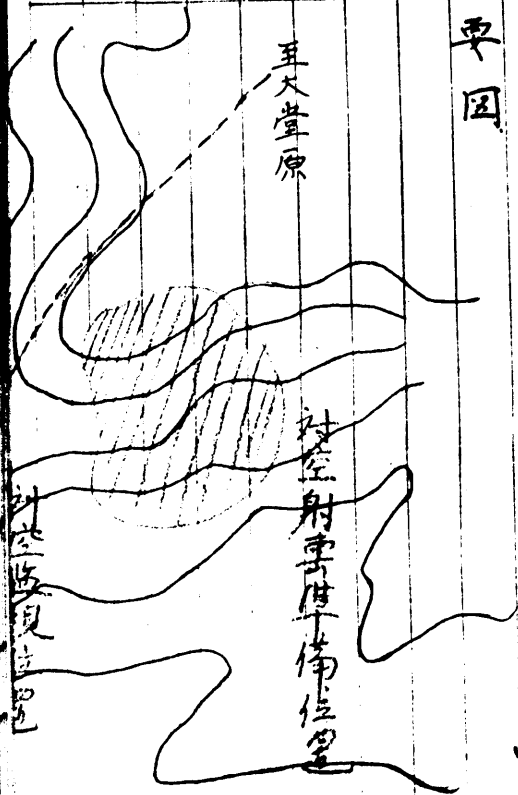 要図
至大堂原
対空射撃準備位置
対空監視位置